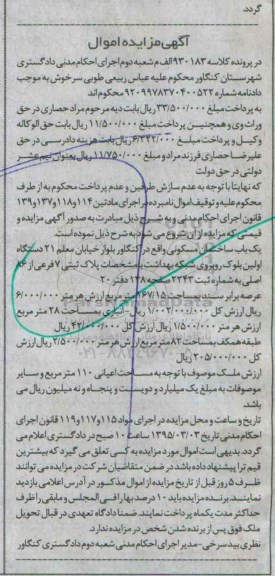 گردد.
آگهی مزایده اموال
در پرونده کلاسه ۹۳۰۱۸۳ الف م شعبه دوم اجرای احکام مدنی دادگستری
شهرستان کنگاور محکوم علیه عباس ربیعی طوبی سرخوش به موجب
دادنامه شماره ۹۲۰۹۹۷۸۳۷۰۴۰۰۵۲۲ محکوم اند
به پرداخت مبلغ ۳۳/۵۰۰/۰۰۰ ریال بابت دیه مرحوم مراد حصاری در حق
وراث وی و همچنین پرداخت مبلغ ۱۱/۵۰۰/۰۰۰ ریال بابت حق الوکاله
وکیل و پرداخت مبلغ ۶/۲۳۲/۰۰۰ ریال بابت هزینه دادرسی در حق
علیرضا حصاری فرزند مراد و مبلغ ۱۱/۷۵۰/۰۰۰ ریال بعنوان نیم عشر
دولتی در حق دولت
که نهایتا با توجه به عدم سازش طرفین و عدم پرداخت محکوم به از طرف
محکوم علیه و توقیف اموال نامبرده بر اجرای مادتین ۱۱۴ و ۱۱۸ و ۱۳۷ و ۱۳۹
قانون اجرای احکام مدنی و به شرح ذیل مبادرت به صدور آگهی مزایده و
قیمتی که مزایده از آن شروع می شود به شرح ذیل نموده است.
یک باب ساختمان مسکونی واقع در کنگاور بلوار خیابان معلم ۲۱ دستگاه
اولین بلوک روبروی شبکه بهداشت به مشخصات پلاک ثبتی ۷ فرعی از ۸۶
اصلی به شماره ثبت ۲۲۴۳ صفحه ۱۲۸ دفتر ۲۰
عرصه برابر سند بمساحت ۱۶۷/۱۵ متر مربع ارزش هر متر ۶/۰۰۰/۰۰۰
ریال ارزش کل ۱/۰۰۲/۰۰۰/۰۰۰ ریال - انباری بمساحت ۲۸ متر مربع
ارزش هر متر ۱/۵۰۰/۰۰۰ ریال ارزش کل ۴۲/۰۰۰/۰۰۰ ریال
طبقه همکف بمساحت ۸۲ متر مربع ارزش هر متر ۲/۵۰۰/۰۰۰ ریال ارزش
کل ۲۰۵/۰۰۰/۰۰۰ ریال
ارزش ملک موصوف با توجه به مساحت اعیانی ۱۱۰ متر مربع و سایر
موصوفات به مبلغ یک میلیارد و دویست و پنجاه و نه میلیون ریال می
باشد.
تاریخ و ساعت و محل مزایده در اجرای مواد ۱۱۵ و ۱۱۷ و ۱۱۹ قانون اجرای
احکام مدنی تاریخ ۱۳۹۵/۰۳/۰۳ ساعت ۱۰ صبح در دادگستری اعلام می
گردد. بدیهی است اموال مورد مزایده به کسی تعلق می گیرد که بیشترین
قیمت را پیشنهاد داده باشد در ضمن متقاضیان شرکت در مزایده می توانند
ظرف ۵ روز قبل از تاریخ مزایده از اموال مذکور در آدرس اعلامی بازدید
نمایند. برنده مزایده باید ۱۰ درصد بها را فی المجلس و مابقی را ظرف
حداکثر مدت یکماه پرداخت نمایند. ضمنا دادگاه تعهدی در قبال تحویل
ملک فوق پس از برنده شدن شخص در مزایده ندارد.
نظری بیدسرخی - مدیر اجرای احکام مدنی شعبه دوم دادگستری کنگاور